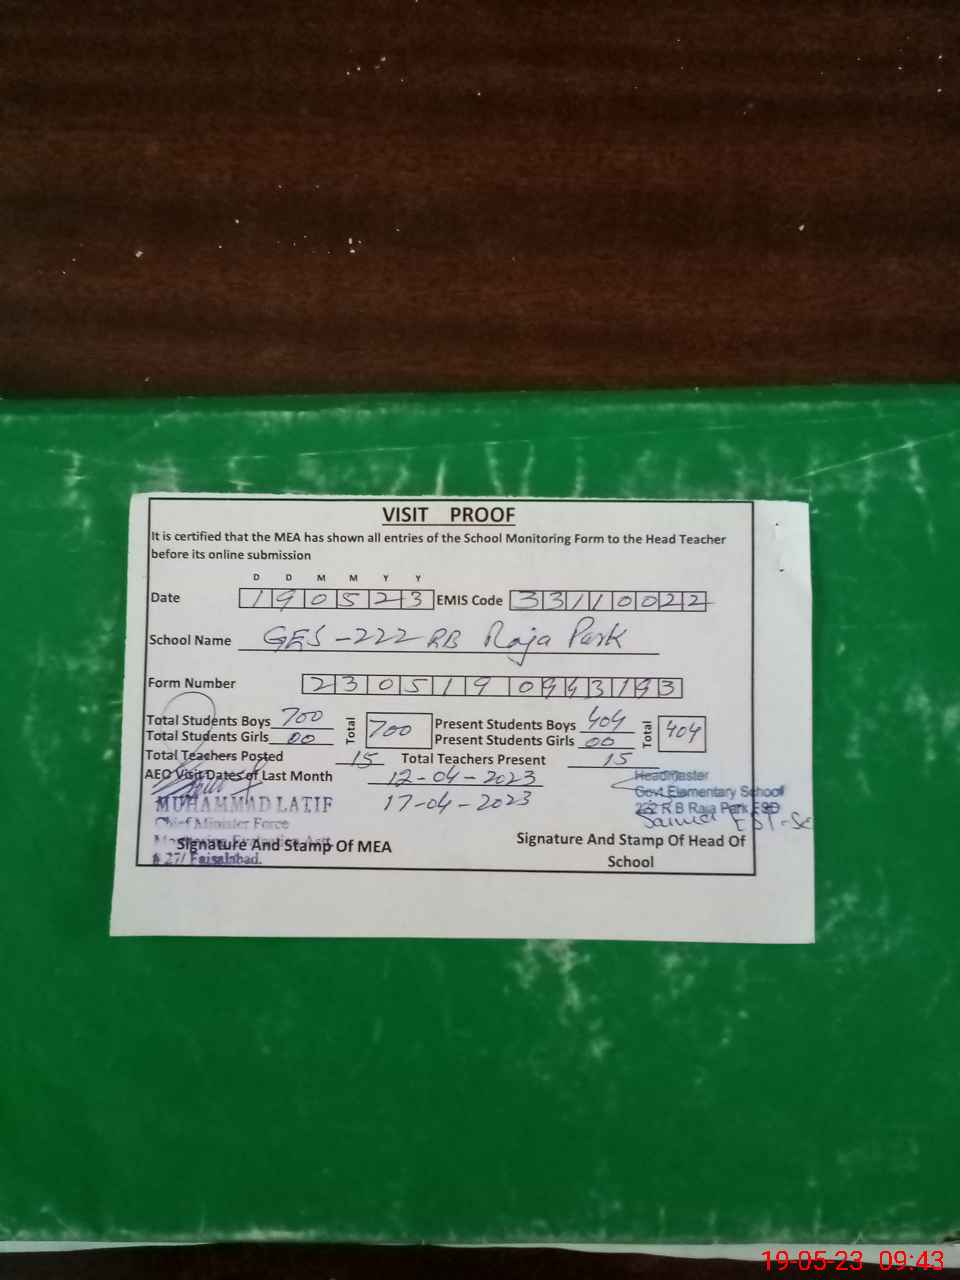 VISIT PROOF
It is certified that the MEA has shown all entries of the School Monitoring Form to the Head Teacher
before its online submission
D D M M Y Y
Date 190523 EMIS Code 33110022
School Name GES-222 RB Raja Park
Form Number 230519 0943193
Total Students Boys 700 Total 700 Present Students Boys 404 Total 404
Total Students Girls 00 Present Students Girls 00
Total Teachers Posted 15 Total Teachers Present 15
AEO Visit Dates of Last Month 12-04-2023
17-04-2023
MUHAMMAD LATIF
Chief Minister Force
# 27/ Faisalabad.
Signature And Stamp Of MEA
Headmaster
Govt. Elementary School
222 R B Raja Park FSD
EST-Sc
Signature And Stamp Of Head Of
School
19-05-23 09:43